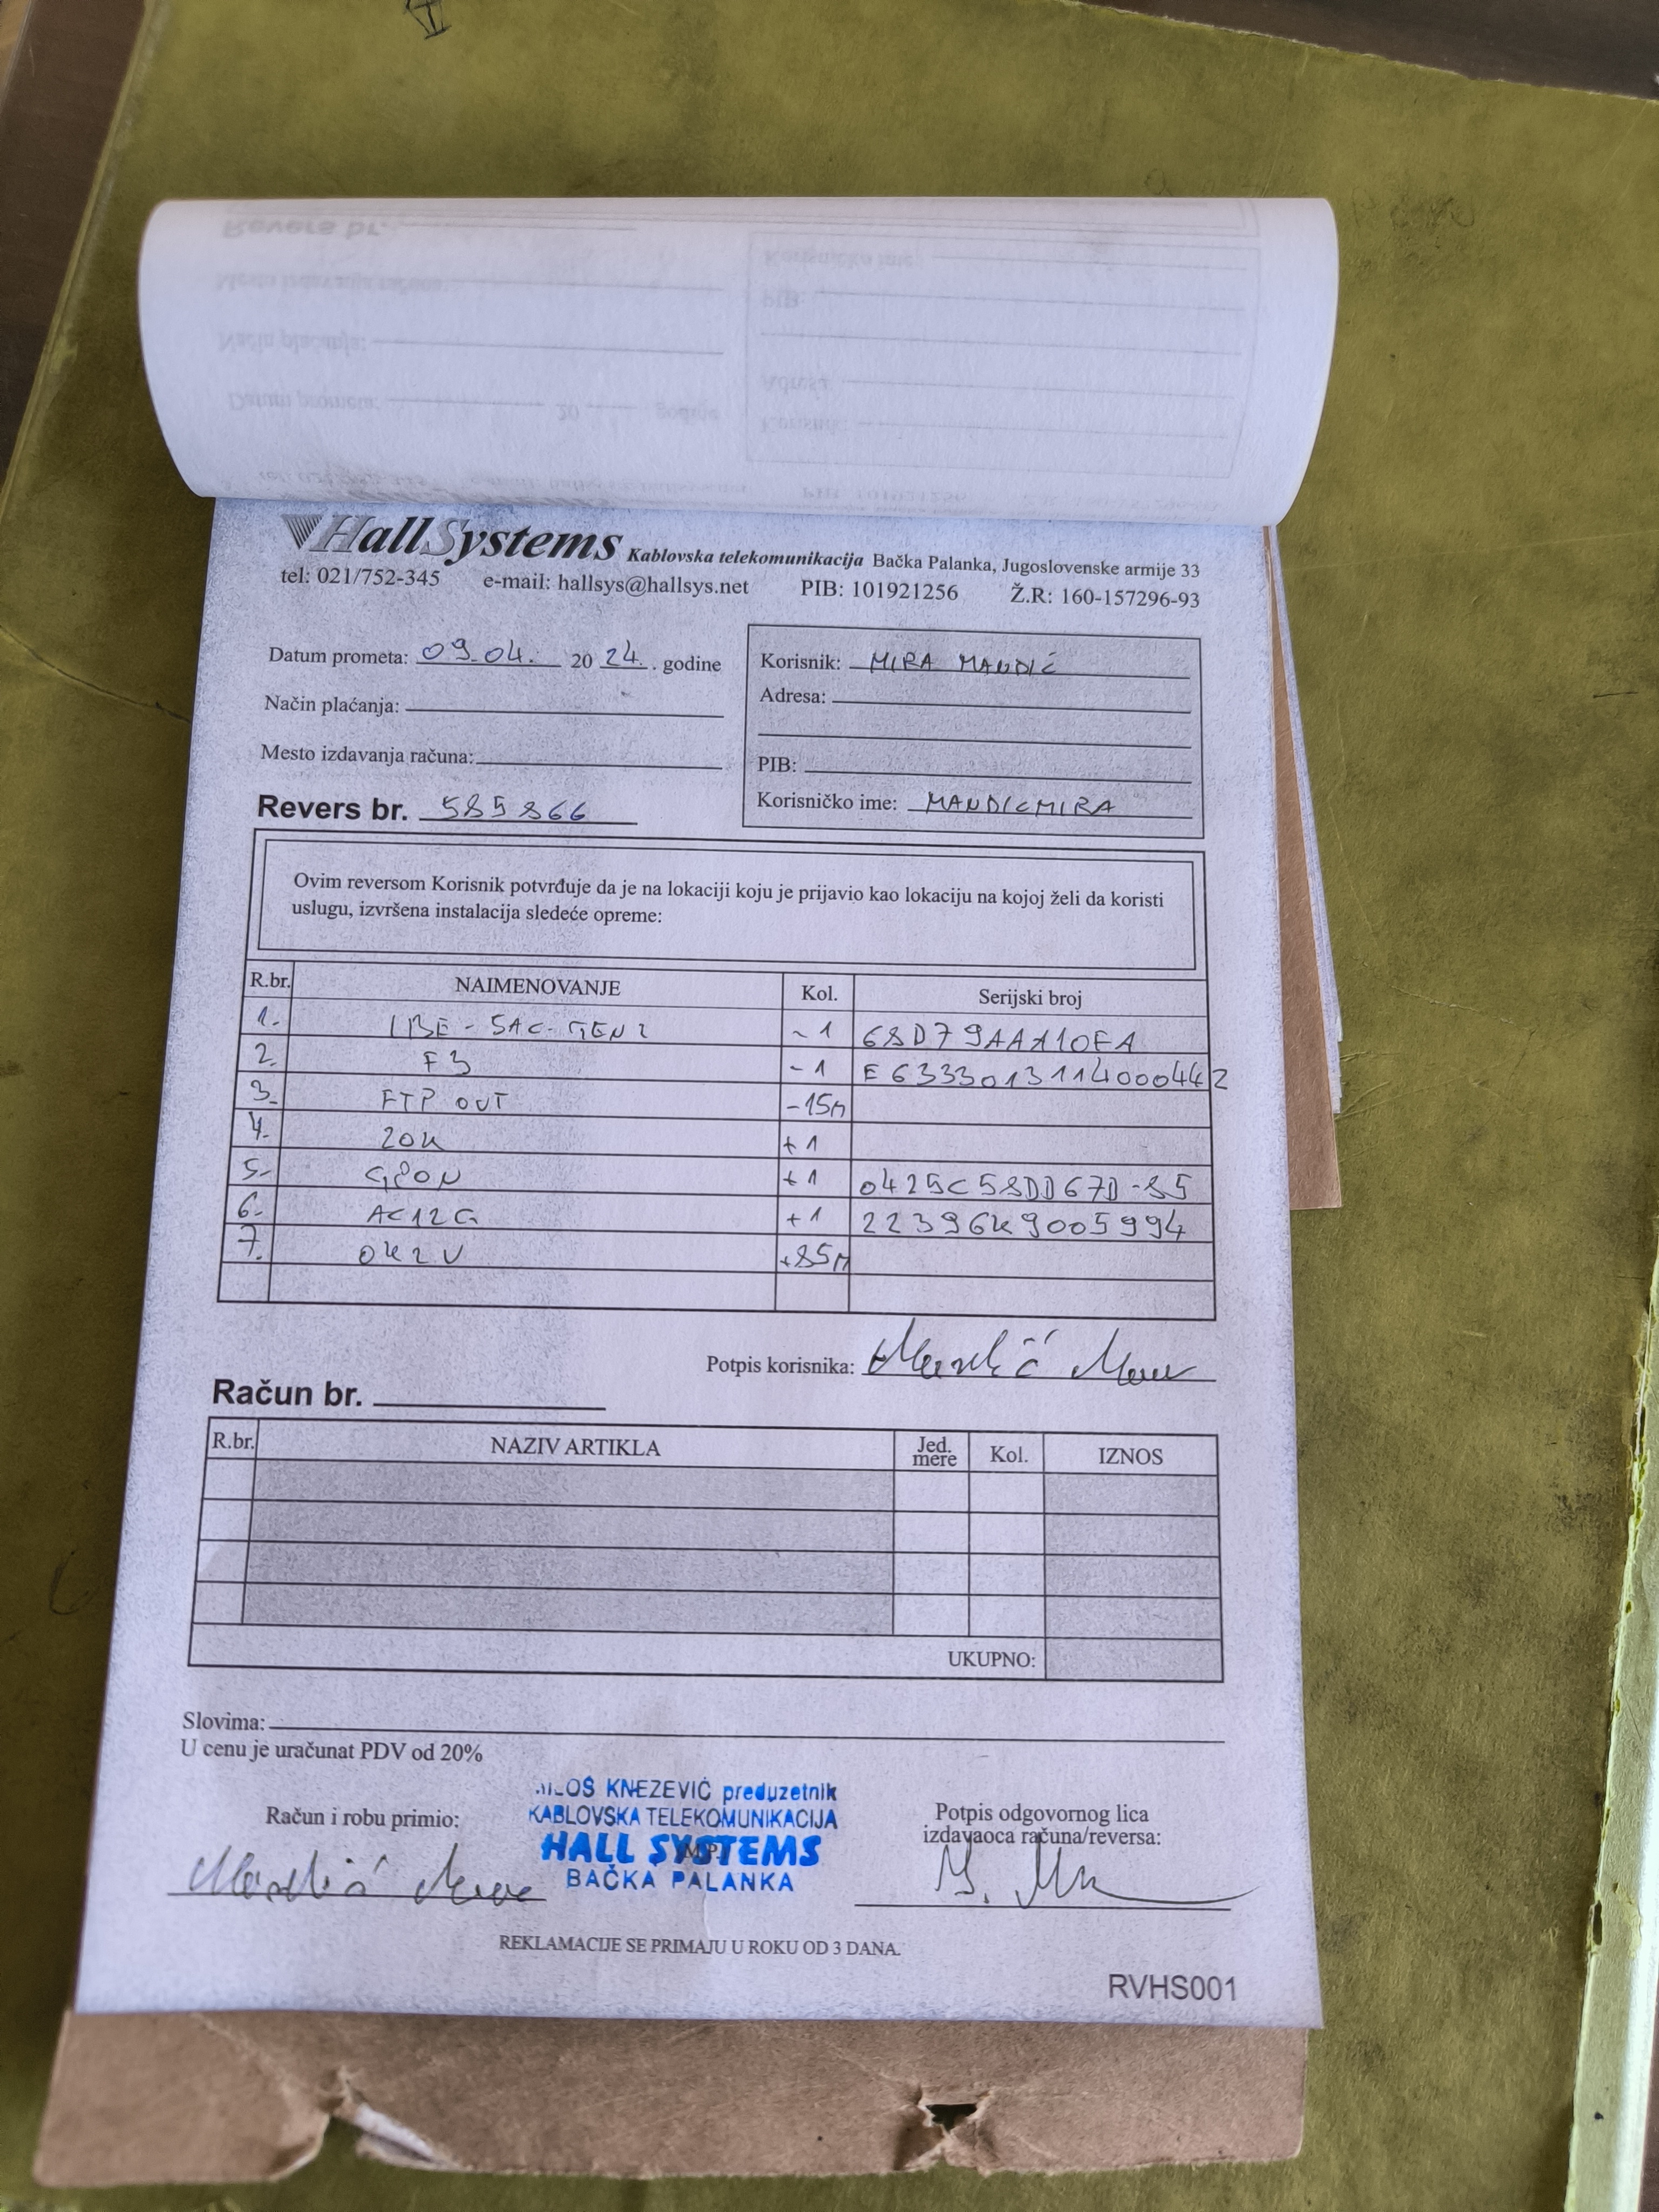 HallSystems Kablovska telekomunikacija Bačka Palanka, Jugoslovenske armije 33
tel: 021/752-345 e-mail: hallsys@hallsys.net PIB: 101921256 Ž.R: 160-157296-93
Datum prometa: 09.04. 20 24. godine
Način plaćanja:
Mesto izdavanja računa:
Revers br. 585866
Korisnik: MIRA MANDIĆ
Adresa:
PIB:
Korisničko ime: MANDICMIRA
Ovim reversom Korisnik potvrđuje da je na lokaciji koju je prijavio kao lokaciju na kojoj želi da koristi
uslugu, izvršena instalacija sledeće opreme:
R.br. NAIMENOVANJE Kol. Serijski broj
1. LBE-5AC-GEN2 -1 68D79AAA10FA
2. F3 -1 E6333013114000442
3. FTP OUT -15m
4. ZOK +1
5. GPON +1 0425C58DD67D-85
6. AC12G +1 22396K9005994
7. OK2V +85m
Potpis korisnika: Mandić Mira
Račun br.
R.br. NAZIV ARTIKLA Jed. mere Kol. IZNOS
UKUPNO:
Slovima:
U cenu je uračunat PDV od 20%
Račun i robu primio:
Mandić Mira
KNEZEVIĆ preduzetnik
KABLOVSKA TELEKOMUNIKACIJA
HALL SYSTEMS
M.P.
BAČKA PALANKA
Potpis odgovornog lica
izdavaoca računa/reversa:
REKLAMACIJE SE PRIMAJU U ROKU OD 3 DANA.
RVHS001